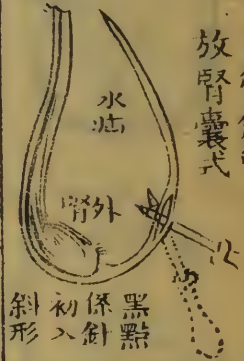 放腎囊式
水疝
外腎
黑點
係針
初入
斜形